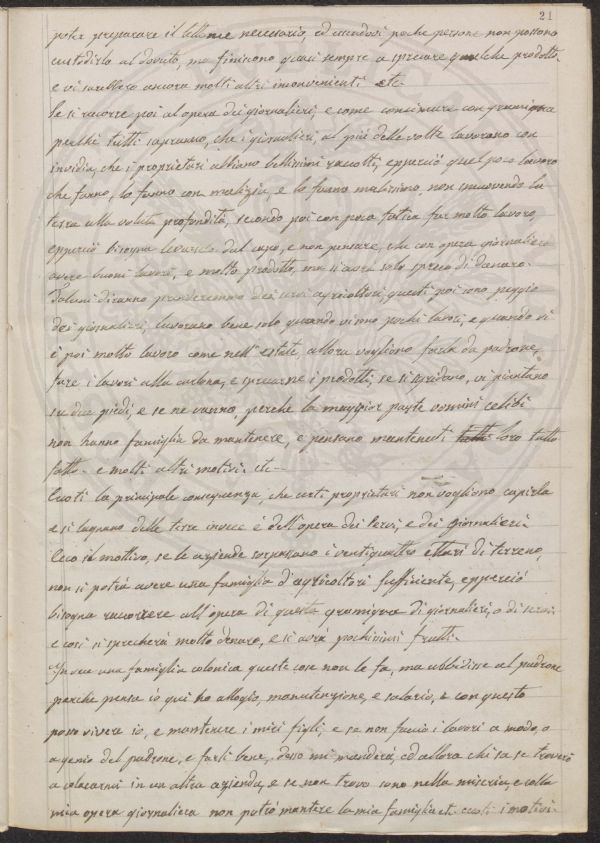 21
poter preparare il letame necessario, ed essendovi poche persone non possono
custodirla al dovuto, ma finiscono quasi sempre a sprecare qualche prodotto
e vi sarebbero ancora molti altri inconvenienti etc
Se si ricorre poi al opera dei giornalieri, e come concimare con gramigna
perchè tutti sapranno, che i giornalieri, al più delle volte lavorano con
invidia, che i proprietari abbiano bellissimi raccolti, epperciò quel poco lavoro
che fanno, lo fanno con malizia, e lo fanno malissimo, non smovendo la
terra alla voluta profondità, secondo poi con poca fatica far molto lavoro,
epperciò bisogna levarselo dal capo, e non pensare, che con opera giornaliera
avere buoni lavori, e molto prodotto, ma si avrà solo spreco di danaro.
Taluni diranno prenderemmo dei servi agricoltori questi poi sono peggio
dei giornalieri, lavorano bene solo quando vi sono pochi lavori, e quando vi
è poi molto lavoro come nell'estate, allora vogliono farla da padrone,
fare i lavori alla carlona, e sprecarne i prodotti, se si sgridano, vi piantano
su due piedi, e se ne vanno, perchè la maggior parte uomini celibi
non hanno famiglia da mantenere, e pensano mantenuti loro tutto
fatto e molti altri motivi etc
Ecco ti la principale conseguenza che certi proprietari non vogliono capirla
e si lagnano delle terre invece è dell'opera dei servi e dei giornalieri
Ecco il mottivo, se le aziende sorpassano i ventiquattro ettari di terreno,
non si potrà avere una famiglia d'agricoltori sufficiente, epperciò
bisogna ricorrere all'opera di questa gramigna di giornalieri, o di servi
e così si sprecherà molto denaro, e si avrà pochissimi frutti
Invece una famiglia colonica queste cose non le fa, ma ubbidisse al padrone
perchè pensa io qui ho alloggio, manutenzione, e salario, e con questo
posso vivere io, e mantenere i miei figli, e se non faccio i lavori a modo, o
a genio del padrone, e farli bene, desso mi manderà, ed allora chi sa se troverò
a colocarmi in un altra azienda, e se non trovo sono nella miseria, e colla
mia opera giornaliera non potrò mantere la mia famiglia etc ecco ti i motivi